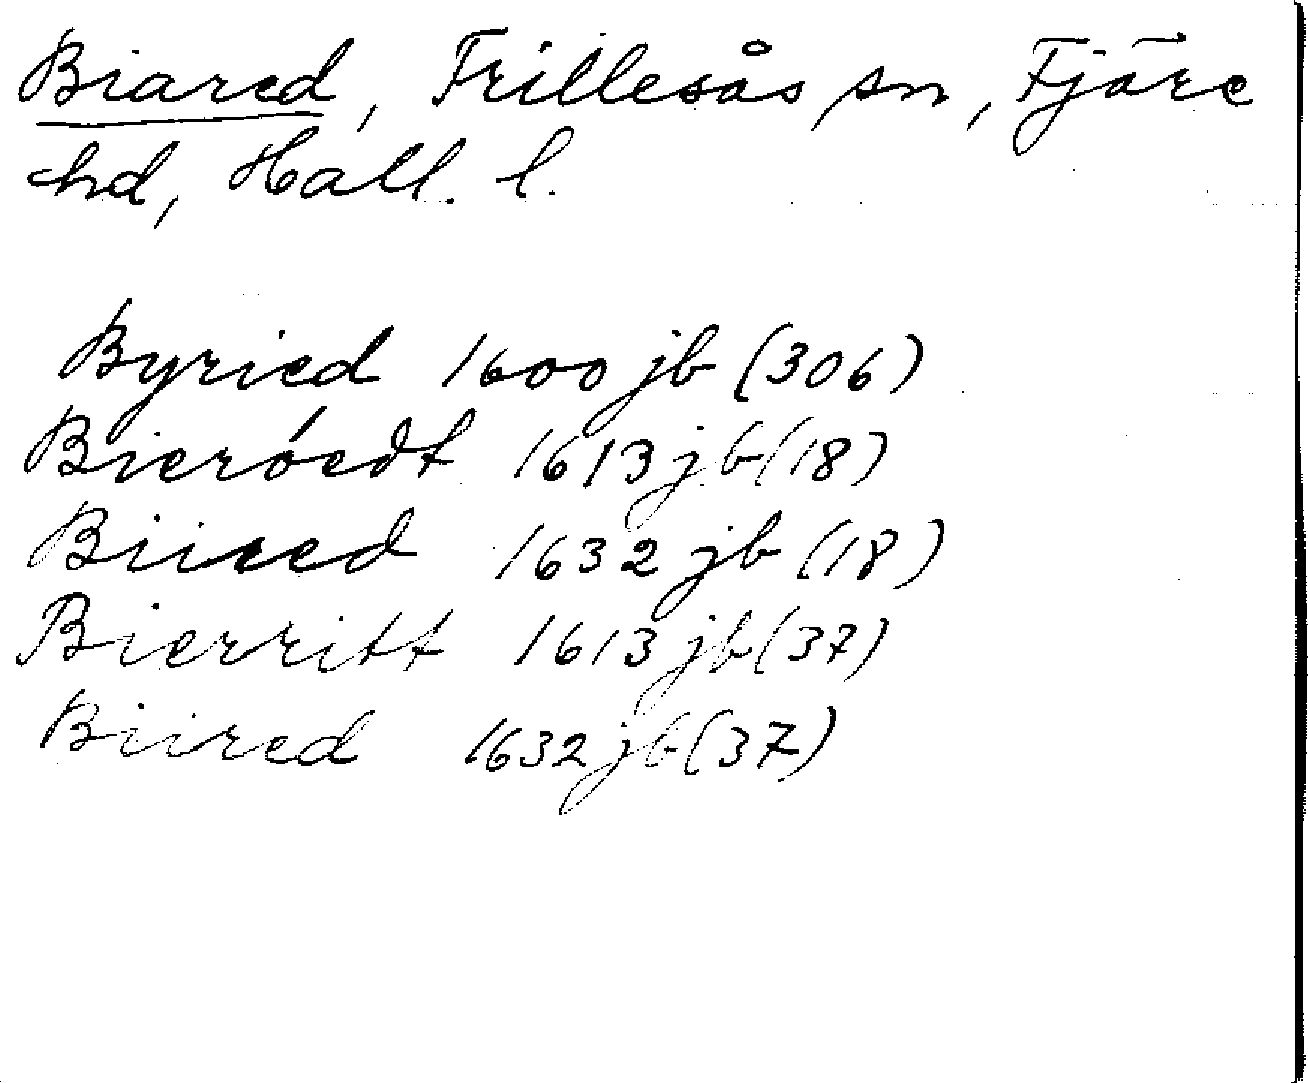 Biared, Frillesås sn, Fjäre
hd, Hall. l.
Byried 1600 jb (306)
Bieróedt 1613 jb (18)
Biired 1632 jb (18)
Bierritt 1613 jb (37)
Biired 1632 jb (37)